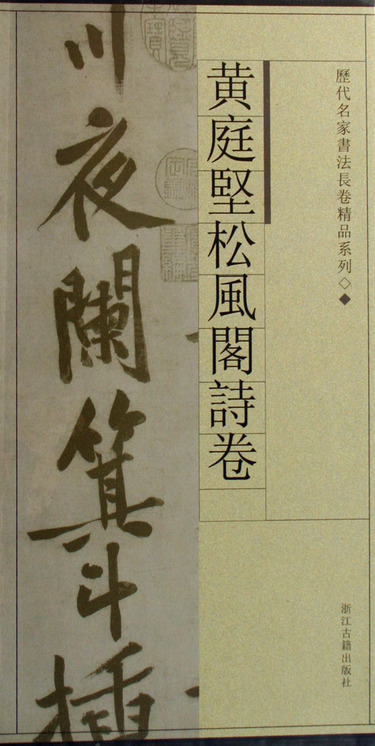 歷代名家書法長卷精品系列◇◆
黄庭堅松風閣詩卷
川夜闌箕斗插
浙江古籍出版社